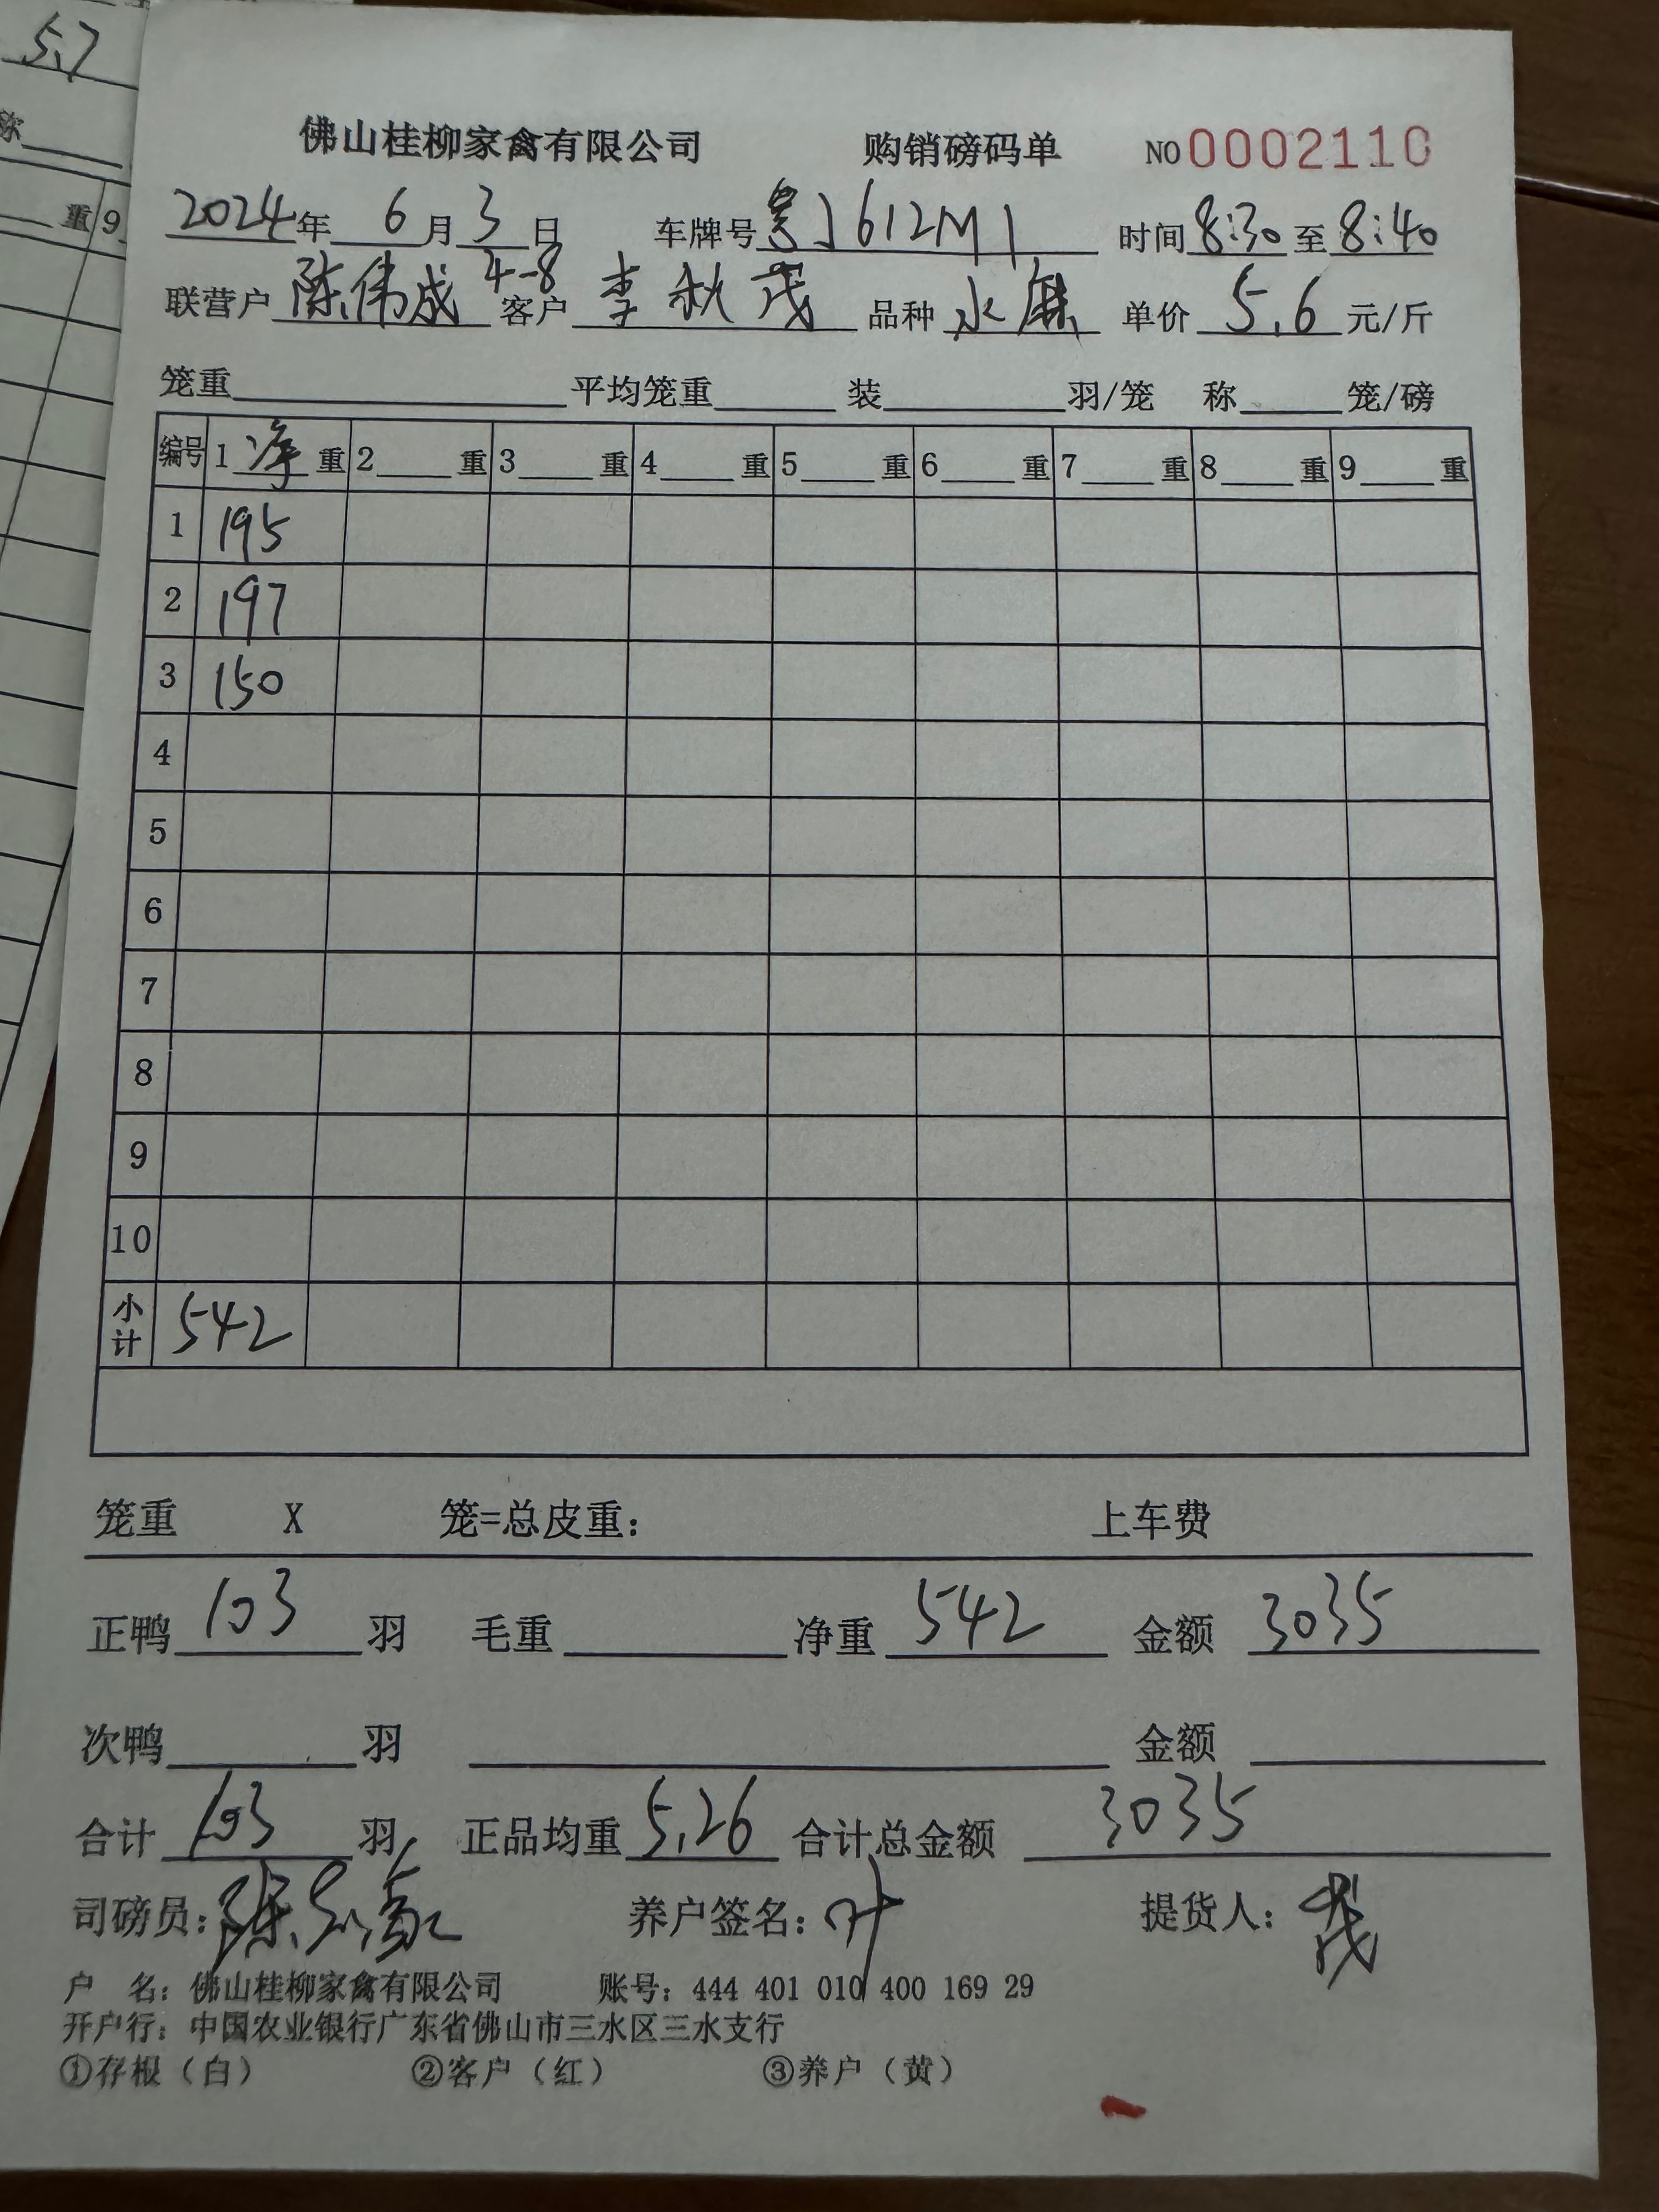 5.7
称
重 9
佛山桂柳家禽有限公司 购销磅码单 NO 0002110
2024年 6月 3日 车牌号 粤J612M1 时间 8:30 至 8:40
联营户 陈伟成 4-8 客户 李秋茂 品种 水麻 单价 5.6 元/斤
笼重 平均笼重 装 羽/笼 称 笼/磅
编号 1 净 重 2 重 3 重 4 重 5 重 6 重 7 重 8 重 9 重
1 195
2 197
3 150
4
5
6
7
8
9
10
小计 542
笼重 X 笼=总皮重: 上车费
正鸭 103 羽 毛重 净重 542 金额 3035
次鸭 羽 金额
合计 103 羽 正品均重 5.26 合计总金额 3035
司磅员: 养户签名: 叶 提货人: 茂
户 名: 佛山桂柳家禽有限公司 账号: 444 401 010 400 169 29
开户行: 中国农业银行广东省佛山市三水区三水支行
①存根（白） ②客户（红） ③养户（黄）